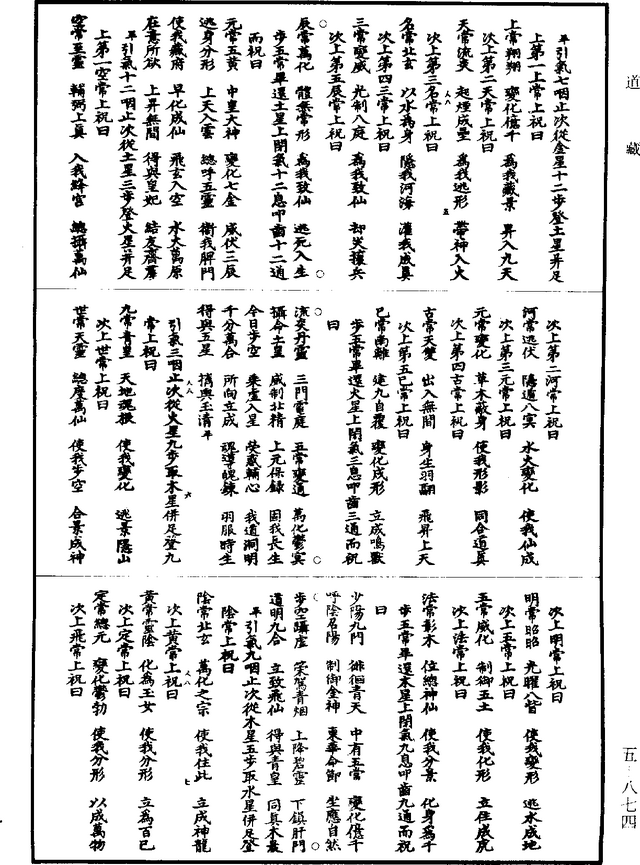 道藏
平引氣七咽止次從金星十二步登土星并足
上第一上常上祝曰
上常翔翔 變化億千 為我藏景 昇入九天
次上第二天常上祝曰
天常流炎 起煙成壘 為我逃形 帶神入火
次上第三名常上祝曰
名常北玄 以水為身 隱我河海 灌我成真
次上第四三常上祝曰
三常變威 光制八庭 為我致仙 却災攘兵
次上第五辰常上祝曰
辰常萬化 體無常形 為我致仙 逃死入生
步五常畢還土星上閉氣十二息叩齒十二通
而祝曰
元常五黃 中皇大神 變化七金 威伏三辰
逃身分形 上天入雲 總呼五靈 衛我脾門
使我藏府 早化成仙 飛玄入空 水火萬原
在意所欲 上昇無間 得與皇妃 結友齊羣
平引氣十二咽止次從土星三步登火星并足
上第一空常上祝曰
空常至靈 輔弼上真 入我絳宮 總攝萬仙
次上第二河常上祝曰
河常逃伏 隱遁八冥 水火變化 使我仙成
次上第三元常上祝曰
元常變化 草木敵身 使我形影 同合道真
次上第四古常上祝曰
古常天變 出入無間 身生羽翮 飛昇上天
次上第五已常上祝曰
已常南離 建九自覆 變化成形 立成鳴獸
步五常畢還火星上閉氣三息叩齒三通而祝
曰
流炎丹靈 三門電庭 五常變通 萬化鬱冥
攝命土皇 威制北精 上元保錄 固我長生
今日步空 乘虛入星 熒惑輔心 我道洞明
千分萬合 所向立成 魂導魄鍊 羽服時生
得與五星 攜與玉清平
引氣三咽止次從火星九步取木星併足登九
常上祝曰
九常青皇 天地魂根 使我變化 逃景隱山
次上世常上祝曰
世常天靈 總度萬仙 使我步空 合景成神
次上明常上祝曰
明常昭昭 光曜八皆 使我變形 逃水成地
次上五常上祝曰
五常威化 制御五土 使我化形 立住成虎
次上法常上祝曰
法常彰木 位總神仙 使我分景 化身為千
步五常畢還木星上閉氣九息叩齒九通而祝
曰
少陽九門 徘徊青天 中有五常 變化億千
呼陰召陽 制御金神 東華命卽 坐應自然
步空躡虛 策駕青烟 上降碧靈 下鎮肝門
道明九合 立致飛仙 得與青皇 同真木晨
平引氣九咽止次從木星五步取水星併足登
陰常上祝曰
陰常北玄 萬化之宗 使我住此 立成神龍
次上黃常上祝曰
黃常靈陰 化為玉女 使我分形 立為百已
次上定常上祝曰
定常總元 變化鬱勃 使我分形 以成萬物
次上飛常上祝曰
五·八七四